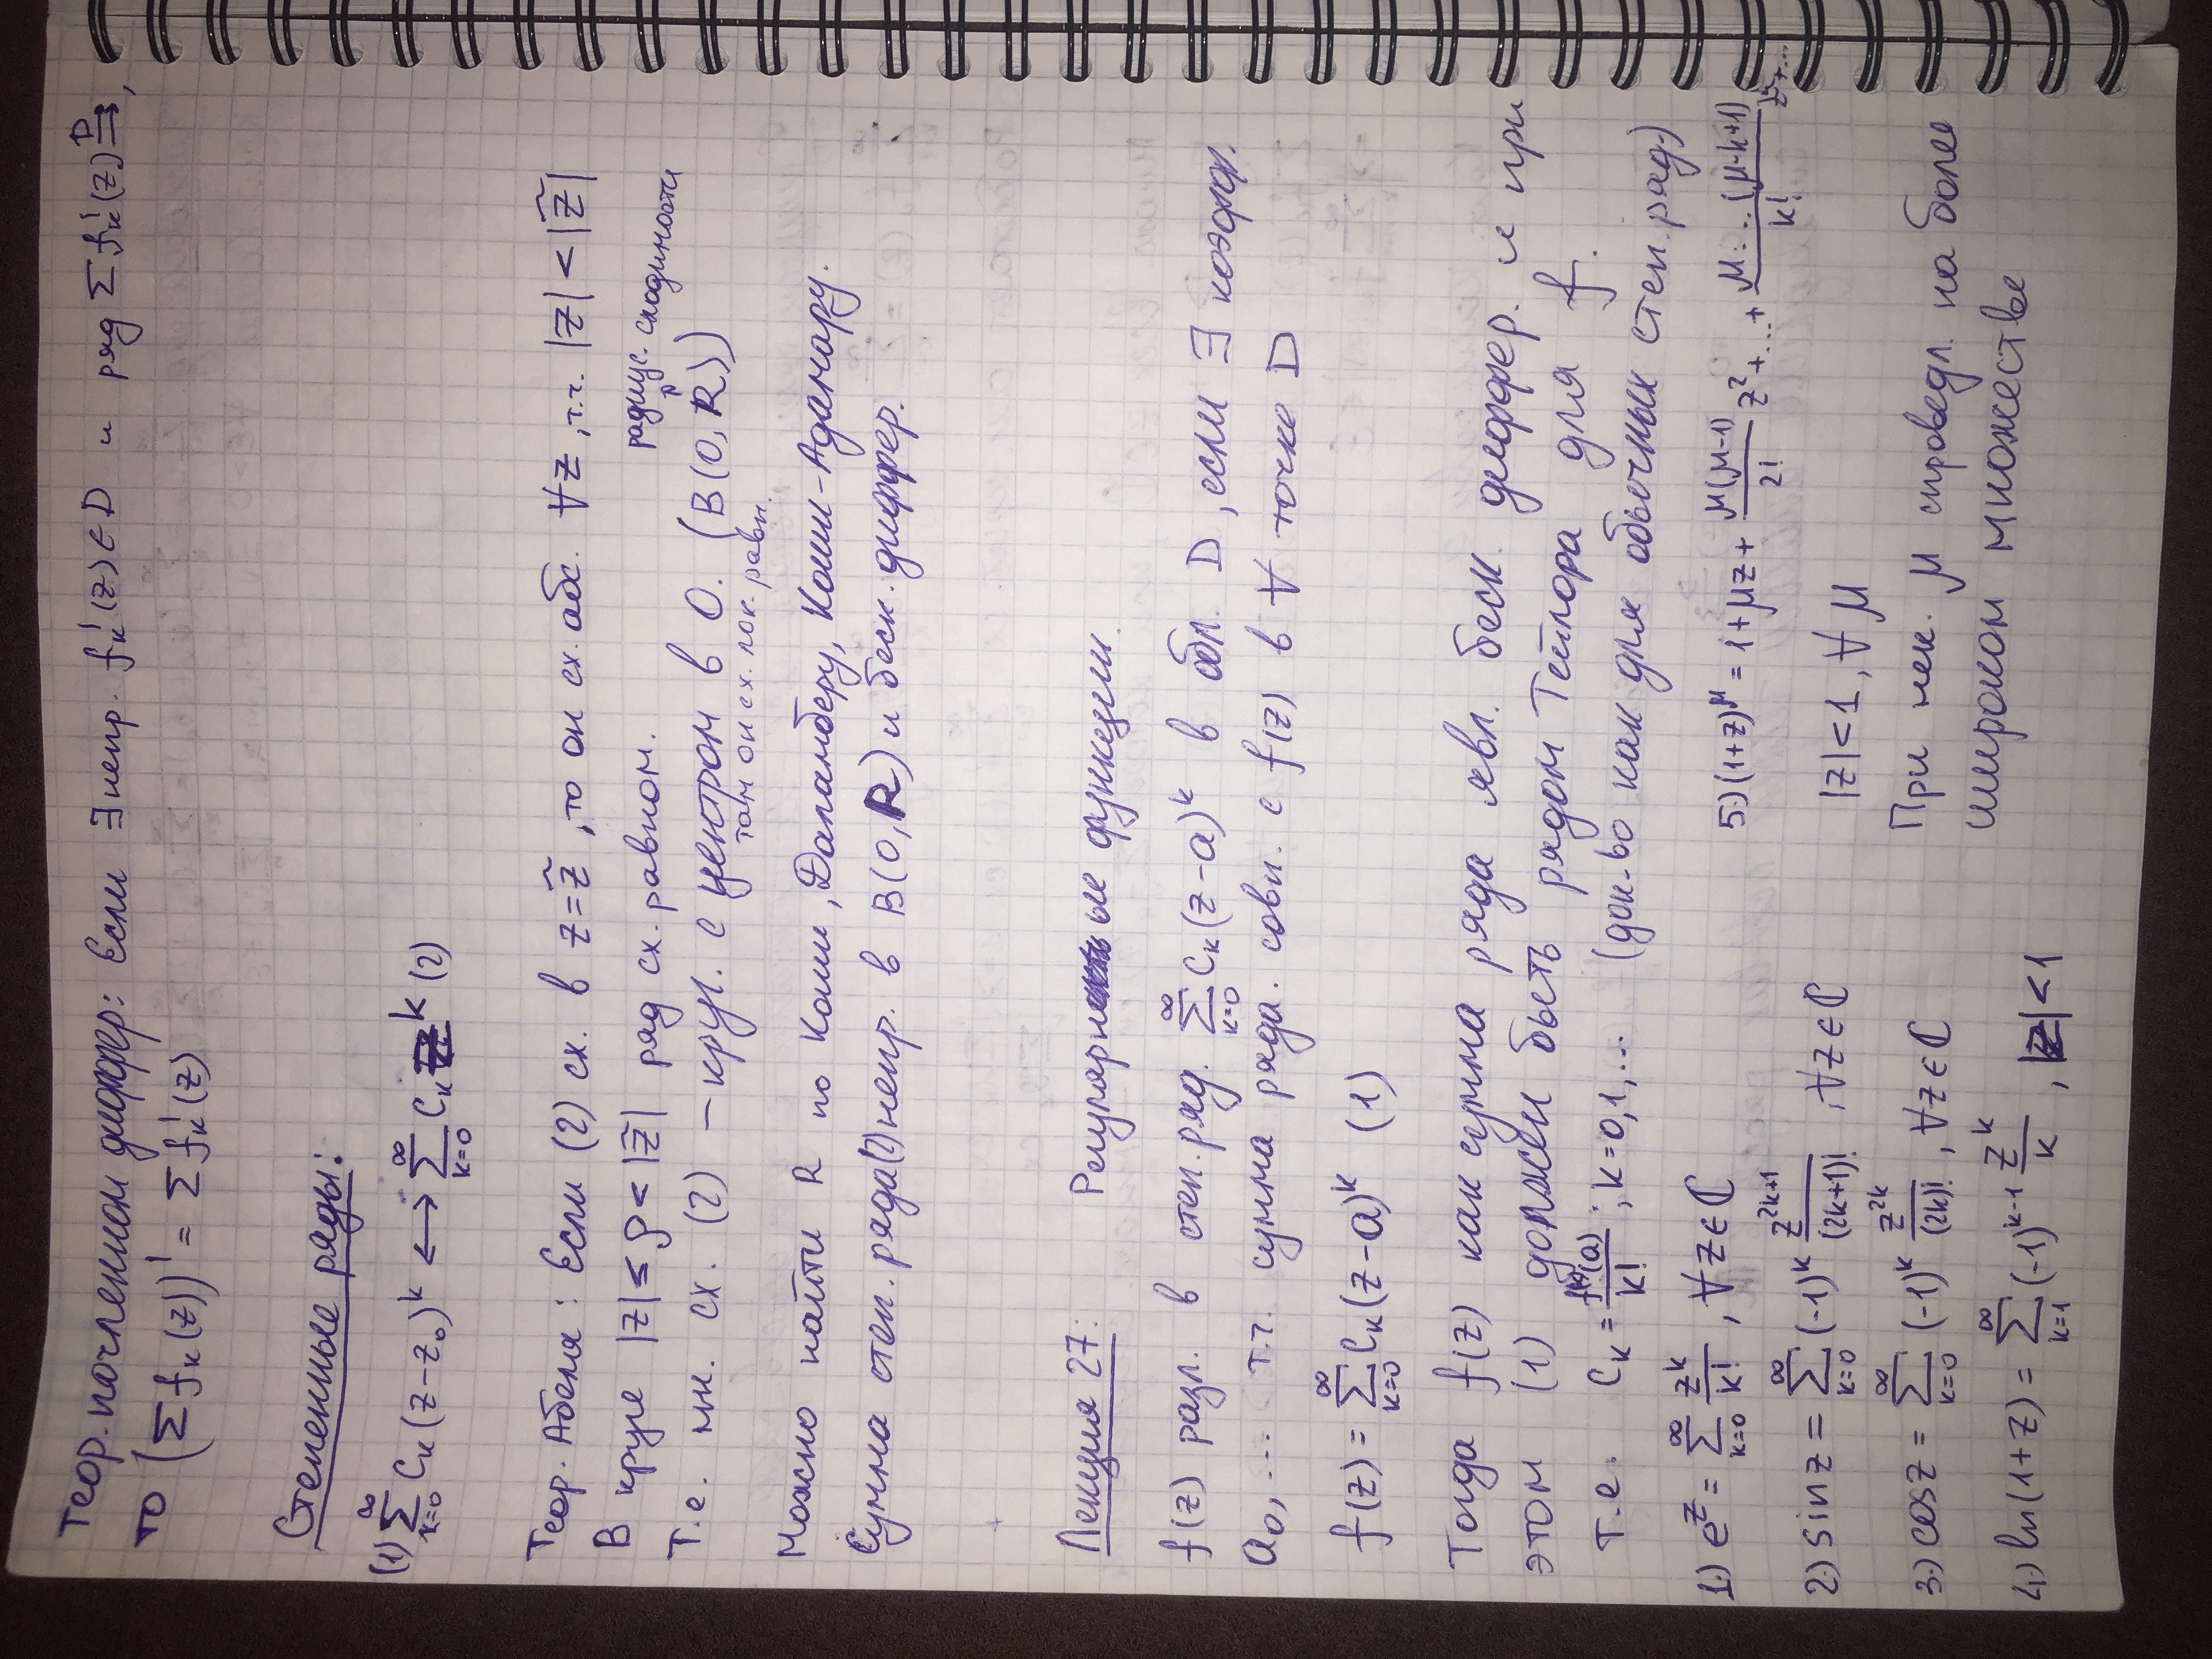 Теор. почленном диффер: Если ∃ непр. fₖ'(z) ∈ D и ряд Σ fₖ'(z) ⇉ᴰ,
то (Σ fₖ(z))' = Σ fₖ'(z)
Степенные ряды:
(1) ∑_{k=0}^{∞} Cₖ(z-z₀)^k ⟷ ∑_{k=0}^{∞} Cₖ z^k (2)
Теор. Абеля: Если (2) сх. в z=z̃, то он сх. абс. ∀z, т.ч. |z| < |z̃|
В круге |z| ≤ ρ < |z̃| ряд сх. равном.
радиус. сходимости
Т.е. мн. сх. (2) – круг. с центром в 0. (B(0, R))
там он сх. лок. равн.
Можно найти R по Коши, Даламберу, Коши-Адамару.
Сумма степ. ряда (2) непр. в B(0, R) и беск. диффер.
Лекция 27: Регулярные функции.
f(z) разл. в степ. ряд. ∑_{k=0}^{∞} Cₖ(z-a)^k в обл. D, если ∃ коэфф.
a₀, ... т.ч. сумма ряда. совп. с f(z) в ∀ точке D
f(z) = ∑_{k=0}^{∞} Cₖ(z-a)^k (1)
Тогда f(z) как сумма ряда явл. беск. диффер. и при
этом (1) должен быть рядом Тейлора для f.
т.е. Cₖ = f^(k)(a)/k! ; k=0,1,... (док-во как для обычных степ. ряд.)
1.) e^z = ∑_{k=0}^{∞} z^k/k! , ∀z∈ℂ
2.) sin z = ∑_{k=0}^{∞} (-1)^k z^{2k+1}/(2k+1)! , ∀z∈ℂ
3.) cos z = ∑_{k=0}^{∞} (-1)^k z^{2k}/(2k)! , ∀z∈ℂ
4.) ln(1+z) = ∑_{k=1}^{∞} (-1)^{k-1} z^k/k , |z|<1
5.) (1+z)^μ = 1+μz+ μ(μ-1)/2! z² +...+ μ·...(μ-k+1)/k! z^k+...
|z|<1, ∀ μ
При нек. μ справедл. на более
широком множестве